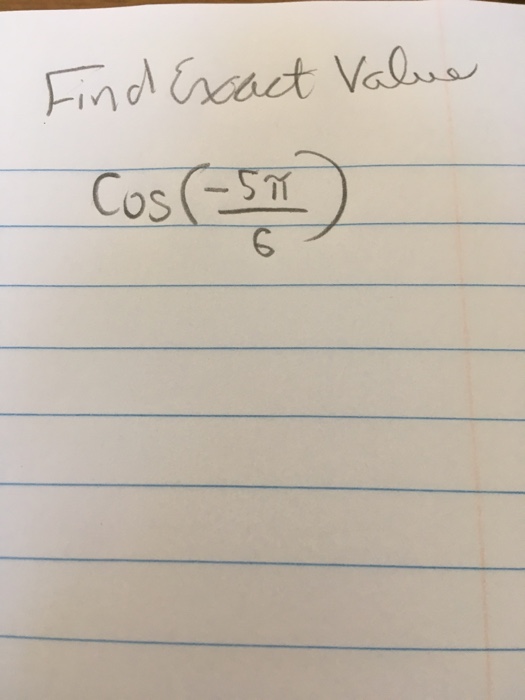 Find Exact Value
Cos(-5π/6)